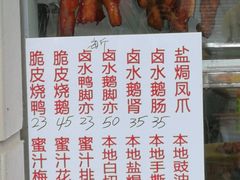 脆皮烧鸭
23
脆皮烧鹅
45
卤水鸭脚亦
23
卤水鹅脚亦
50
卤水鹅肾
35
卤水鹅肠
35
盐焗凤爪
蜜汁梅
蜜汁花
蜜汁排
本地白切
本地盐焗
本地手撕
本地豉油